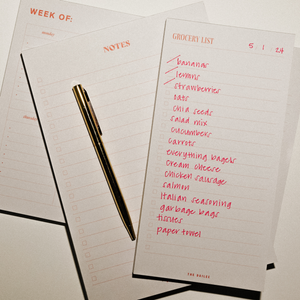 WEEK OF:
NOTES
GROCERY LIST
5 1 24
bananas
lemons
strawberries
oats
chia seeds
salad mix
cucumbers
carrots
everything bagels
cream cheese
chicken sausage
salmon
Italian seasoning
garbage bags
tissues
paper towel